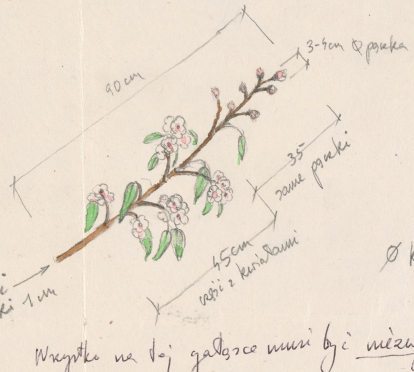 90cm
3-4cm Ø pąceka
35
same pączki
45cm
części z kwiatami
1 cm
Ø
Wszystko na tej gałązce musi być